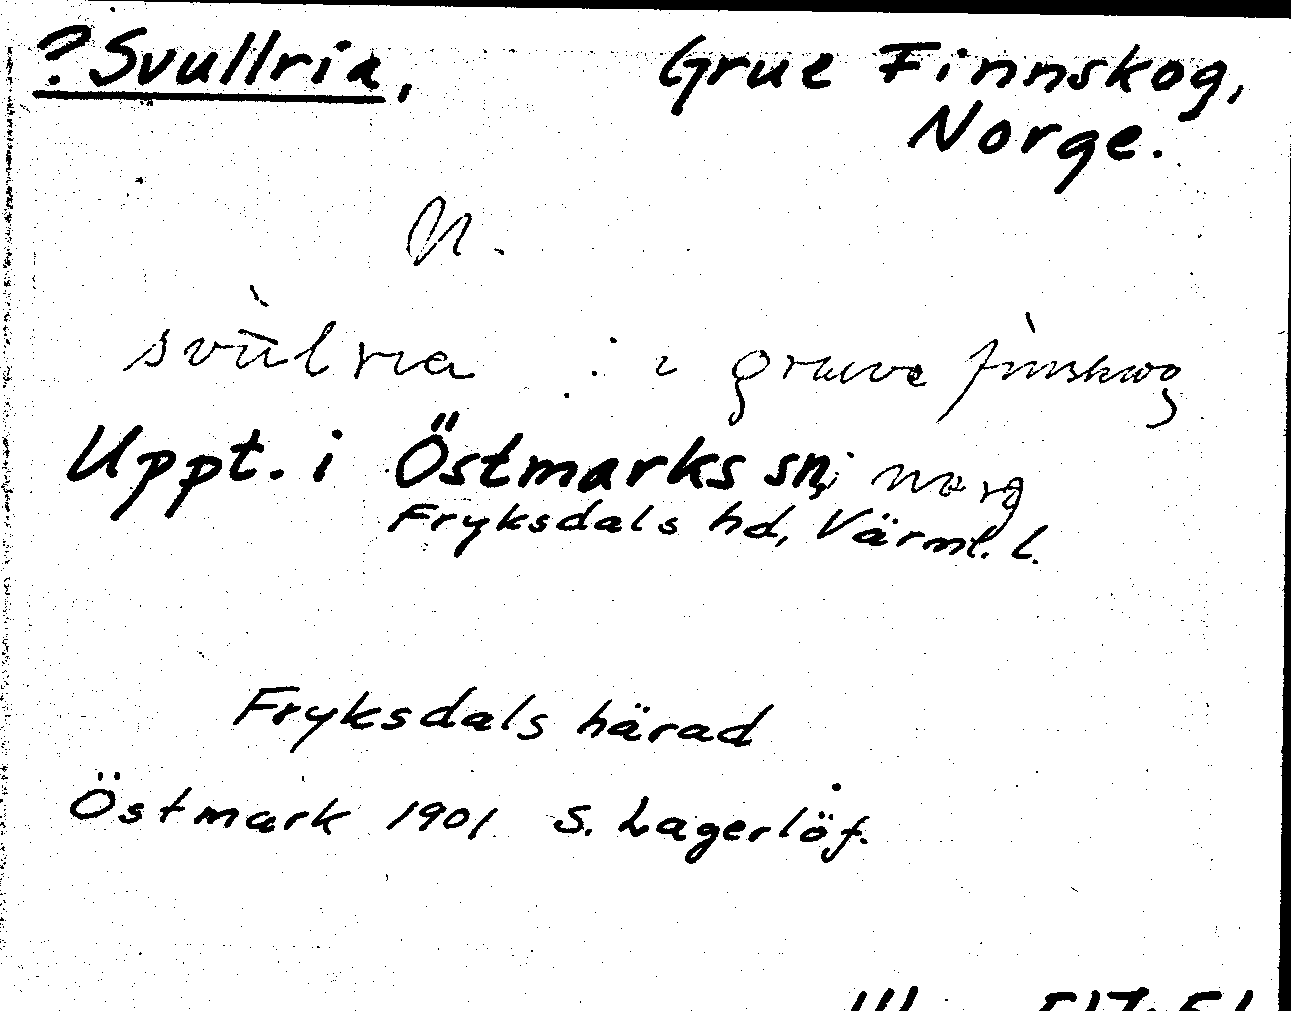 ? Svullria, Grue Finnskog,
Norge.
N.
svùlria : i grueve finskog
Uppt. i Östmarks sn, i norg
Fryksdals hd, Värml. l.
Fryksdals härad
Östmark 1901 S. Lagerlöf.